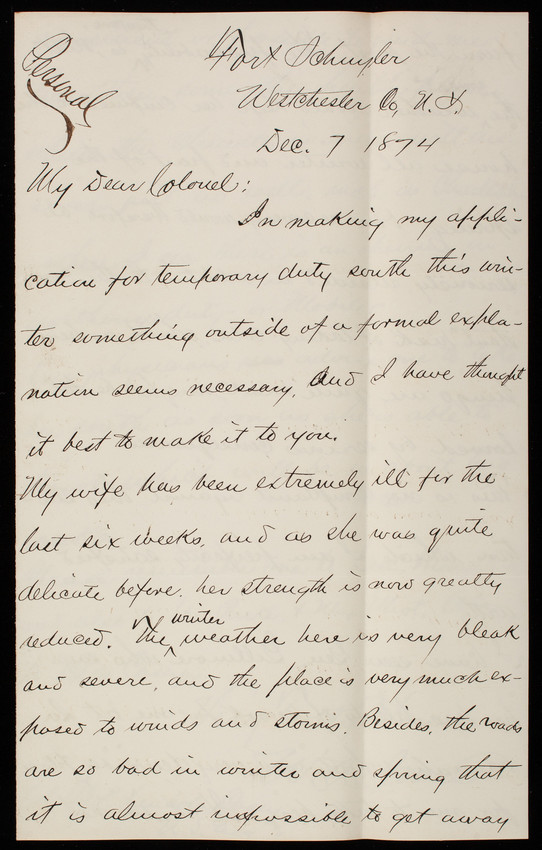 Personal
Fort Schuyler
Westchester Co, N.Y.
Dec. 7 1874
My Dear Colonel:
In making my appli-
cation for temporary duty south this win-
ter something outside of a formal expla-
nation seems necessary, and I have thought
it best to make it to you.
My wife has been extremely ill for the
last six weeks, and as she was quite
delicate before, her strength is now greatly
reduced. The winter weather here is very bleak
and severe, and the place is very much ex-
posed to winds and storms. Besides, the roads
are so bad in winter and spring that
it is almost impossible to get away